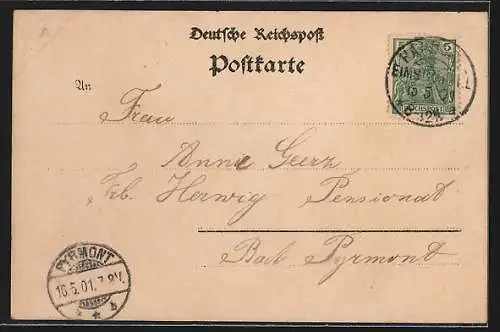 Deutsche Reichspost
Postkarte
5
An
Frau
Anna Geerz
Herwig Pensionat
Bad Pyrmont
PYRMONT
16.5.01.7-8V.